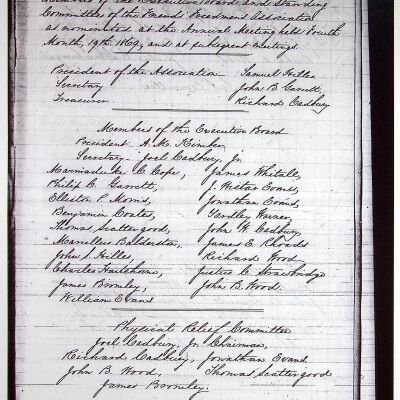 Members of the Executive Board and Standing
Committees of the Friends Freedmen's Association
as nominated at the Annual Meeting held Fourth
Month, 19th. 1869, and at subsequent meetings.
President of the Association Samuel Hilles.
Secretary John B. Garrett,
Treasurer Richard Cadbury
Members of the Executive Board
President A. M. Kimber
Secretary Joel Cadbury, Jr
Marmaduke C. Cope, James Whitall,
Philip C. Garrett, J. Wistar Evans,
Elliston P. Morris, Jonathan Evans,
Benjamin Coates, Yardley Warner,
Thomas Scattergood, John W. Cadbury,
Marcellus Balderston, James E. Rhoads
John S. Hilles, Richard Wood,
Charles Justus C. Strawbridge
James Bromley, John B. Wood.
William Evans
Physical Relief Committee
Joel Cadbury, Jr Chairman,
Richard Cadbury, Jonathan Evans.
John B. Wood, Thomas Scattergood
James Bromley.